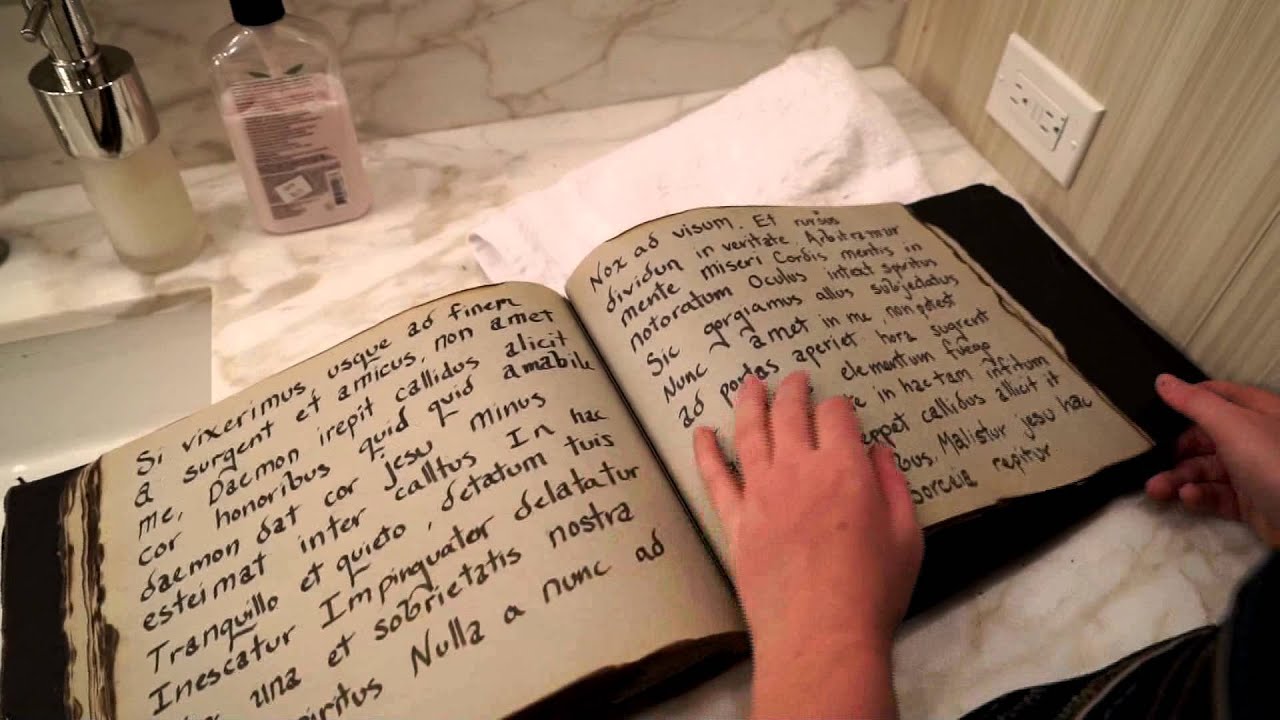 Si vixerimus, usque ad finem
a surgent et amicus, non amet
me, Daemon irepit callidus alicit
cor honoribus quid quid amabile
daemon dat cor jesu minus
esteimat inter calltus In hac
Tranquillo et quieto, detatum tuis
Inescatur Impinguator delatatur
una et sobrietatis nostra
Nulla a nunc ad
Nox ad visum. Et rursus
dividun in veritate Arbitramur
mente miseri Cordis mentis in
notoratum Oculus inteat spiritus
Sic gorgiamus allus subjedatus
Nunc amet in me, non potest
ad portas aperiet hora sugrent
elementum fuego
in hactam infitum
callidus allicit it
Malistur jesu hac
repitur